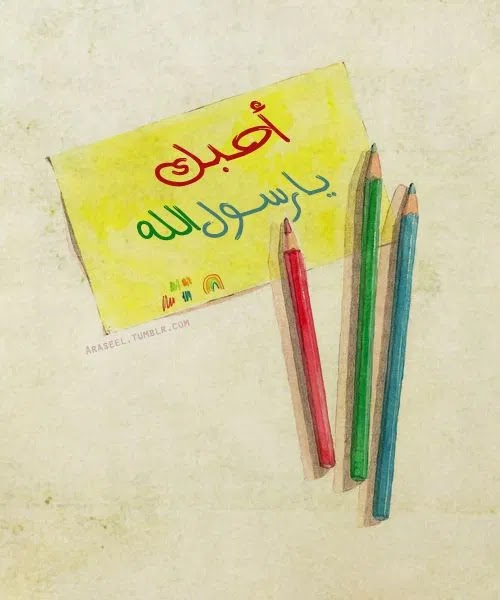 أحبك
يا رسول الله
ARASEEL.TUMBLR.COM